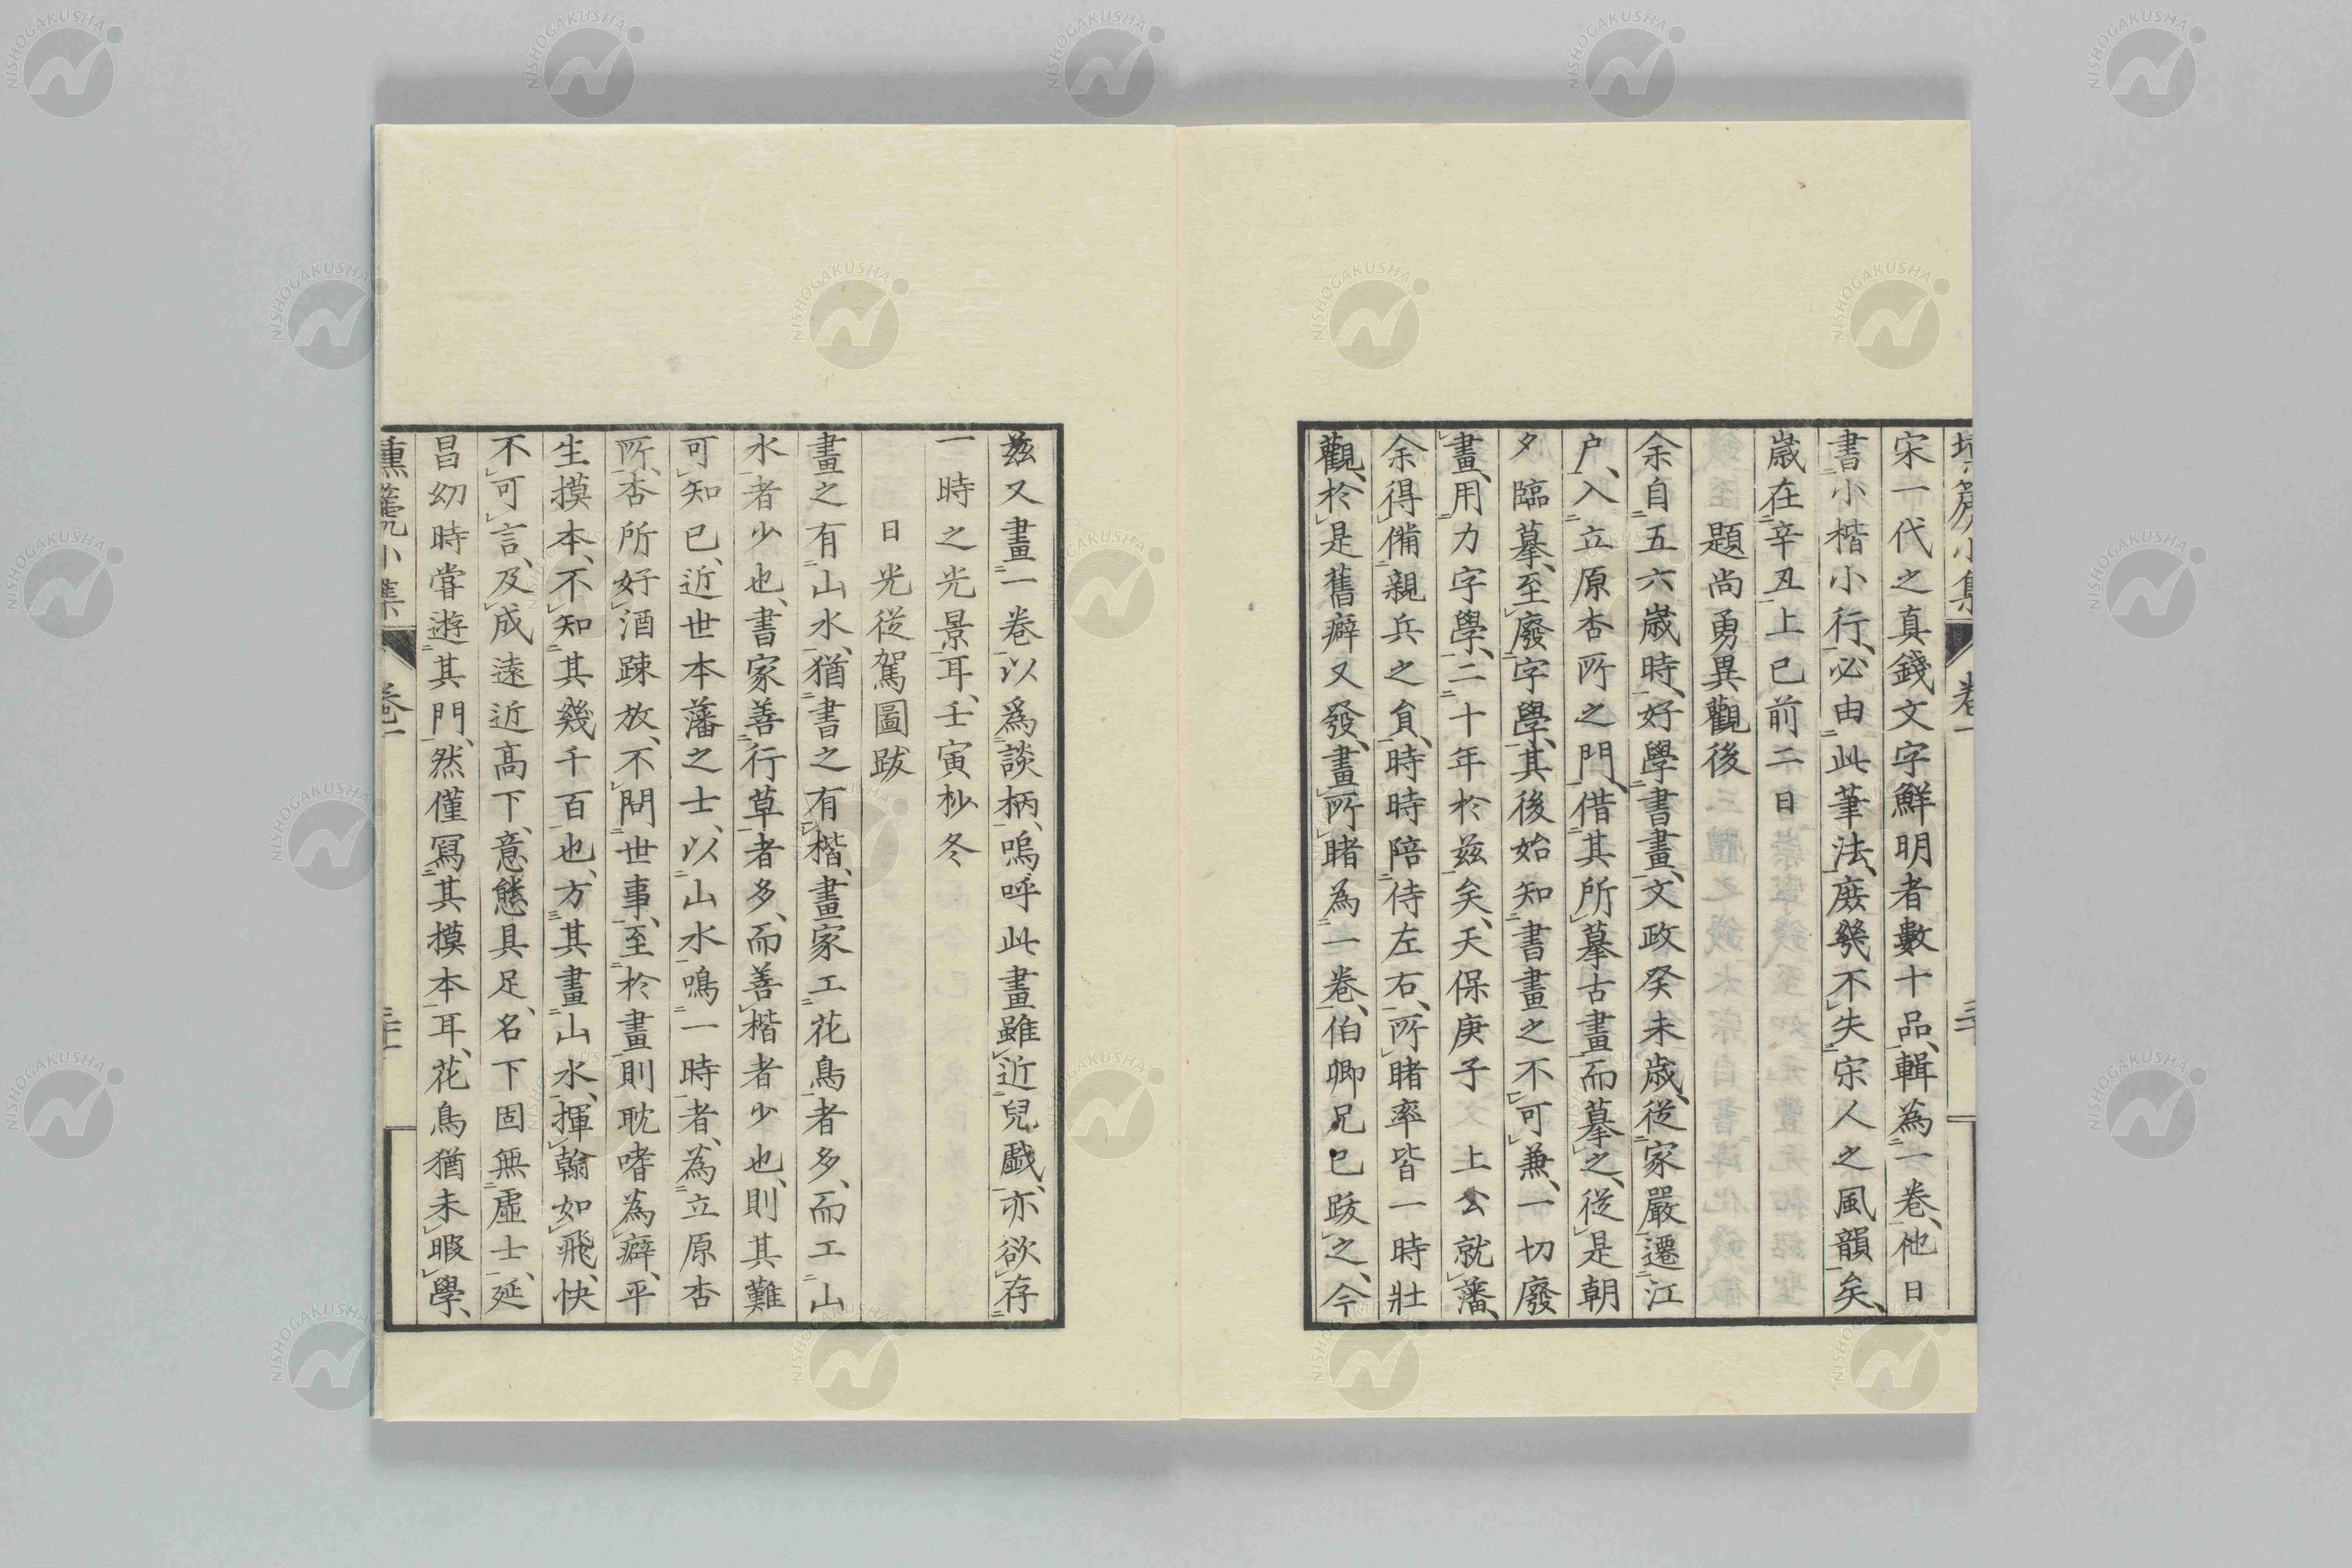 宋一代之真錢文字鮮明者數十品、輯為一卷、他日
書小楷小行、必由此筆法、庻幾不失宋人之風韻矣、
歳在辛丑上巳前二日
題尚勇異觀後
余自五六歳時、好學書畫、文政癸未歳、從家嚴遷江
戶、入立原杏所之門、借其所摹古畫而摹之、從是朝
夕臨摹、至廢字學、其後始知書畫之不可兼、一切廢
畫、用力字學、二十年於茲矣、天保庚子 上公就藩、
余得備親兵之負、時時陪侍左右、所睹率皆一時壯
觀、於是舊癖又發、畫所睹為一卷、伯卿兄已跋之、今
茲又畫一卷以爲談柄、嗚呼此畫雖近兒戯、亦欲存
一時之光景耳、壬寅杪冬
日光從駕圖跋
畫之有山水、猶書之有楷、畫家工花鳥者多、而工山
水者少也、書家善行草者多、而善楷者少也、則其難
可知已、近世本藩之士、以山水鳴一時者、為立原杏
所、杏所好酒踈放、不問世事、至於畫則耽嗜為癖、平
生摸本、不知其幾千百也、方其畫山水、揮翰如飛、快
不可言、及成遠近高下、意態具足、名下固無虛士、延
昌幼時嘗遊其門、然僅寫其摸本耳、花鳥猶未暇學、
小集 卷一